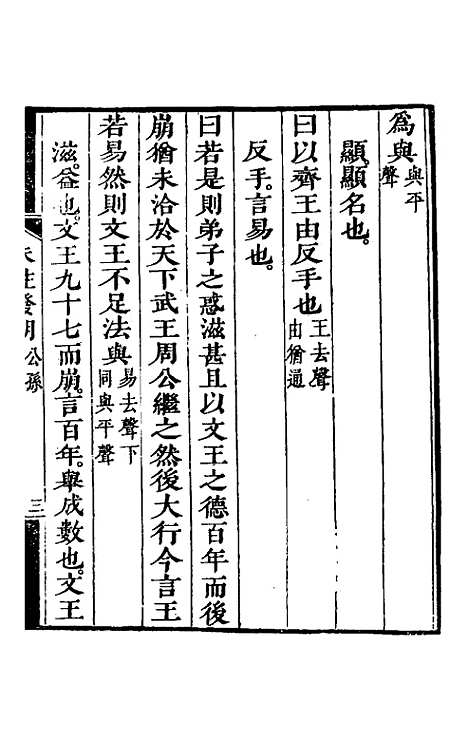 爲與與平聲
顯顯名也。
曰以齊王由反手也王去聲由猶通
反手。言易也。
曰若是則弟子之惑滋甚且以文王之德百年而後
崩猶未洽於天下武王周公繼之然後大行今言王
若易然則文王不足法與易去聲下同與平聲
滋。益也。文王九十七而崩。言百年。舉成數也。文王
朱註發明公孫
三